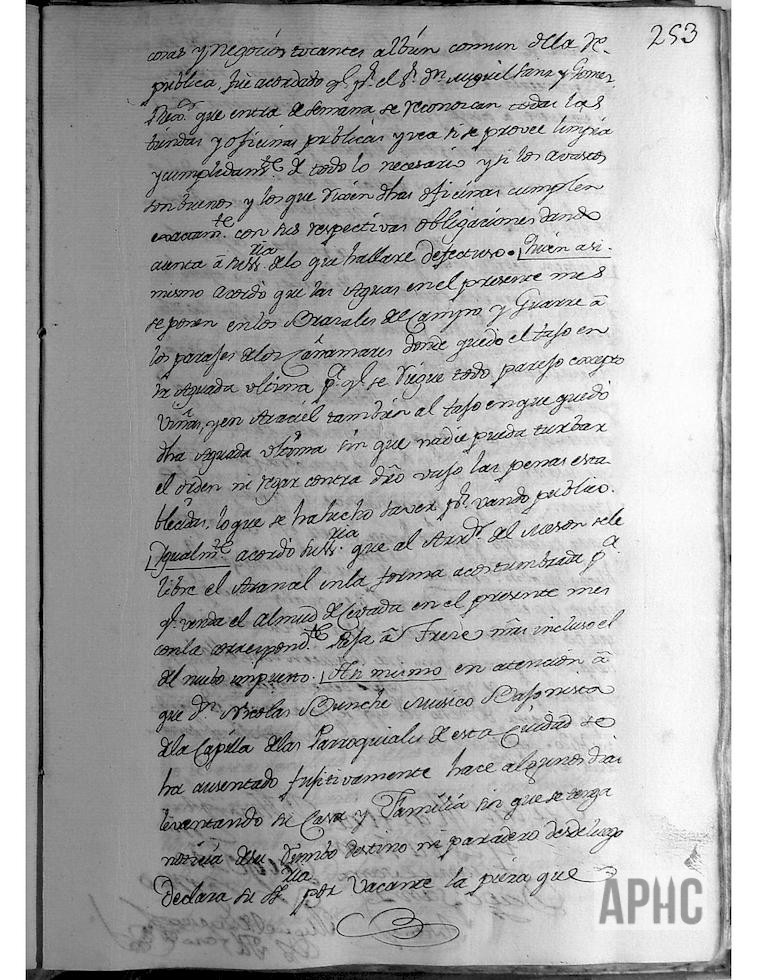 253
cosas y negocios tocantes al bien comun de la Re-
publica, fue acordado q.e p.r el S.r d.n Miguel Sanz y Gomez
que entra de semana se reconozcan todas las
tiendas y oficinas publicas y vea si se provee limpia
y cumplidam.te de todo lo necesario y si los avastos
son buenos y los que viven dhas oficinas cumplen
exactam.te con sus respectivas obligaciones dando
cuenta â su Ss.ria de lo que hallare defectuoso.
mismo acordò que las Aguas en el presente mes
se ponen en los Brazales de Campo y Guarre â
los parajes de los Cañamares donde quedò el tajo en
la Aguada ultima p.a q.e se riegue todo parejo excepto
Viñas, y en Araciel tambien al tajo en que quedò
dha Aguada ultima sin que nadie pueda turbar
el orden ni regar contra dro vajo las penas esta
blecidas, lo que se ha hecho saver p.r vando publico.
Igualm.te acordò su Ss.ria que al Arrd.r del Meson se le
libre el Aranzel en la forma acostumbrada p.a
q.e venda el Almud de Cevada en el presente mes
con la correspond.te â Trece mrs incluso el
del nuebo impuesto. Asi mismo en atencion â
que d.n Nicolas Bunche Musico Bajonista
de la Capilla de las Parroquiales de esta Ciudad se
ha ausentado fugitivamente hace algunos dias
levantando su Casa y Familia sin que se tenga
noticia de su destino ni paradero desde luego
Declara su Ss.ria por Vacante la pieza que
APHC